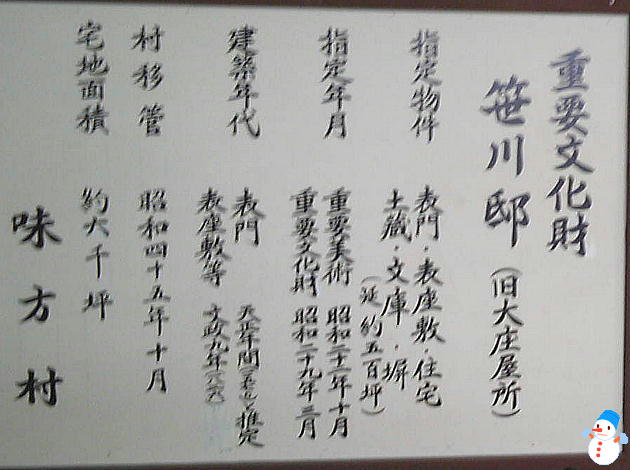 重要文化財
笹川邸 (旧大庄屋所)
指定物件 表門・表座敷・住宅
土蔵・文庫・塀
(延 約五百坪)
指定年月 重要美術 昭和二十二年十月
重要文化財 昭和二十九年三月
建築年代 表門 天正年間 と推定
表座敷等 文政九年(一八二六)
村移管 昭和四十五年十月
宅地面積 約六千坪
味方村